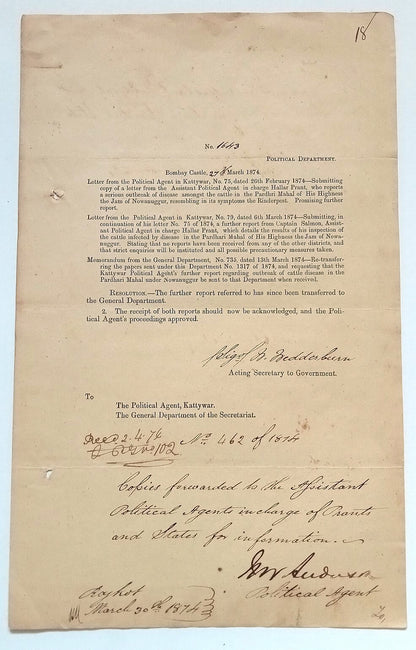 18
No. 1643
POLITICAL DEPARTMENT.
Bombay Castle, 27th March 1874.
Letter from the Political Agent in Kattywar, No. 75, dated 26th February 1874—Submitting
copy of a letter from the Assistant Political Agent in charge Hallar Prant, who reports
a serious outbreak of disease amongst the cattle in the Pardhri Mahal of His Highness
the Jam of Nowanuggur, resembling in its symptoms the Rinderpest. Promising further
report.
Letter from the Political Agent in Kattywar, No. 79, dated 6th March 1874—Submitting, in
continuation of his letter No. 75 of 1874, a further report from Captain Salmon, Assist-
ant Political Agent in charge Hallar Prant, which details the results of his inspection
of the cattle infected by disease in the Pardhri Mahal of His Highness the Jam of Nowa-
nuggur. Stating that no reports have been received from any of the other districts, and
that strict enquiries will be instituted and all possible precautionary measures taken.
Memorandum from the General Department, No. 735, dated 13th March 1874—Re-transfer-
ring the papers sent under this Department No. 1317 of 1874, and requesting that the
Kattywar Political Agent's further report regarding outbreak of cattle disease in the
Pardhri Mahal under Nowanuggur be sent to that Department when received.
RESOLUTION.—The further report referred to has since been transferred to
the General Department.
2. The receipt of both reports should now be acknowledged, and the Poli-
tical Agent's proceedings approved.
W. Wedderburn
Acting Secretary to Government.
To
The Political Agent, Kattywar.
The General Department of the Secretariat.
2.4.74
No 462 of 1874
Copies forwarded to the Assistant
Political Agents in charge of Prants
and States for information.
Political Agent
Rajkot
March 30th 1874